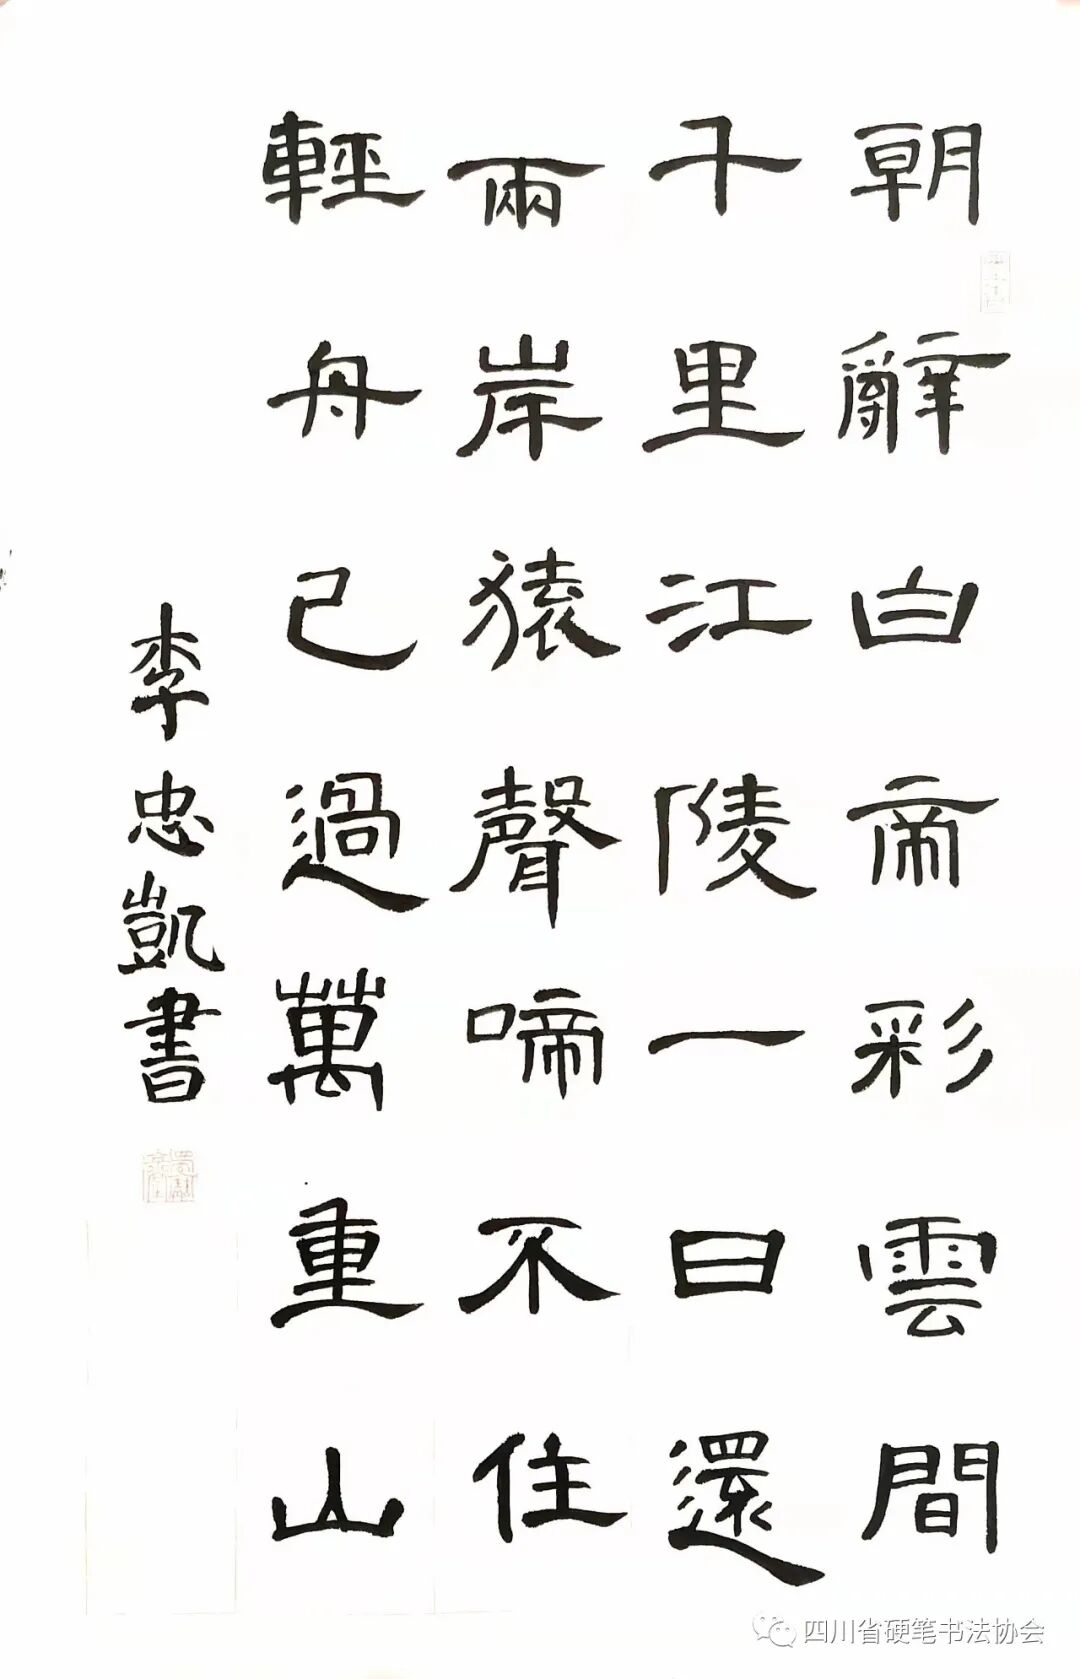 朝辭白帝彩雲間
千里江陵一日還
兩岸猿聲啼不住
輕舟已過萬重山
李忠凱書
四川省硬笔书法协会